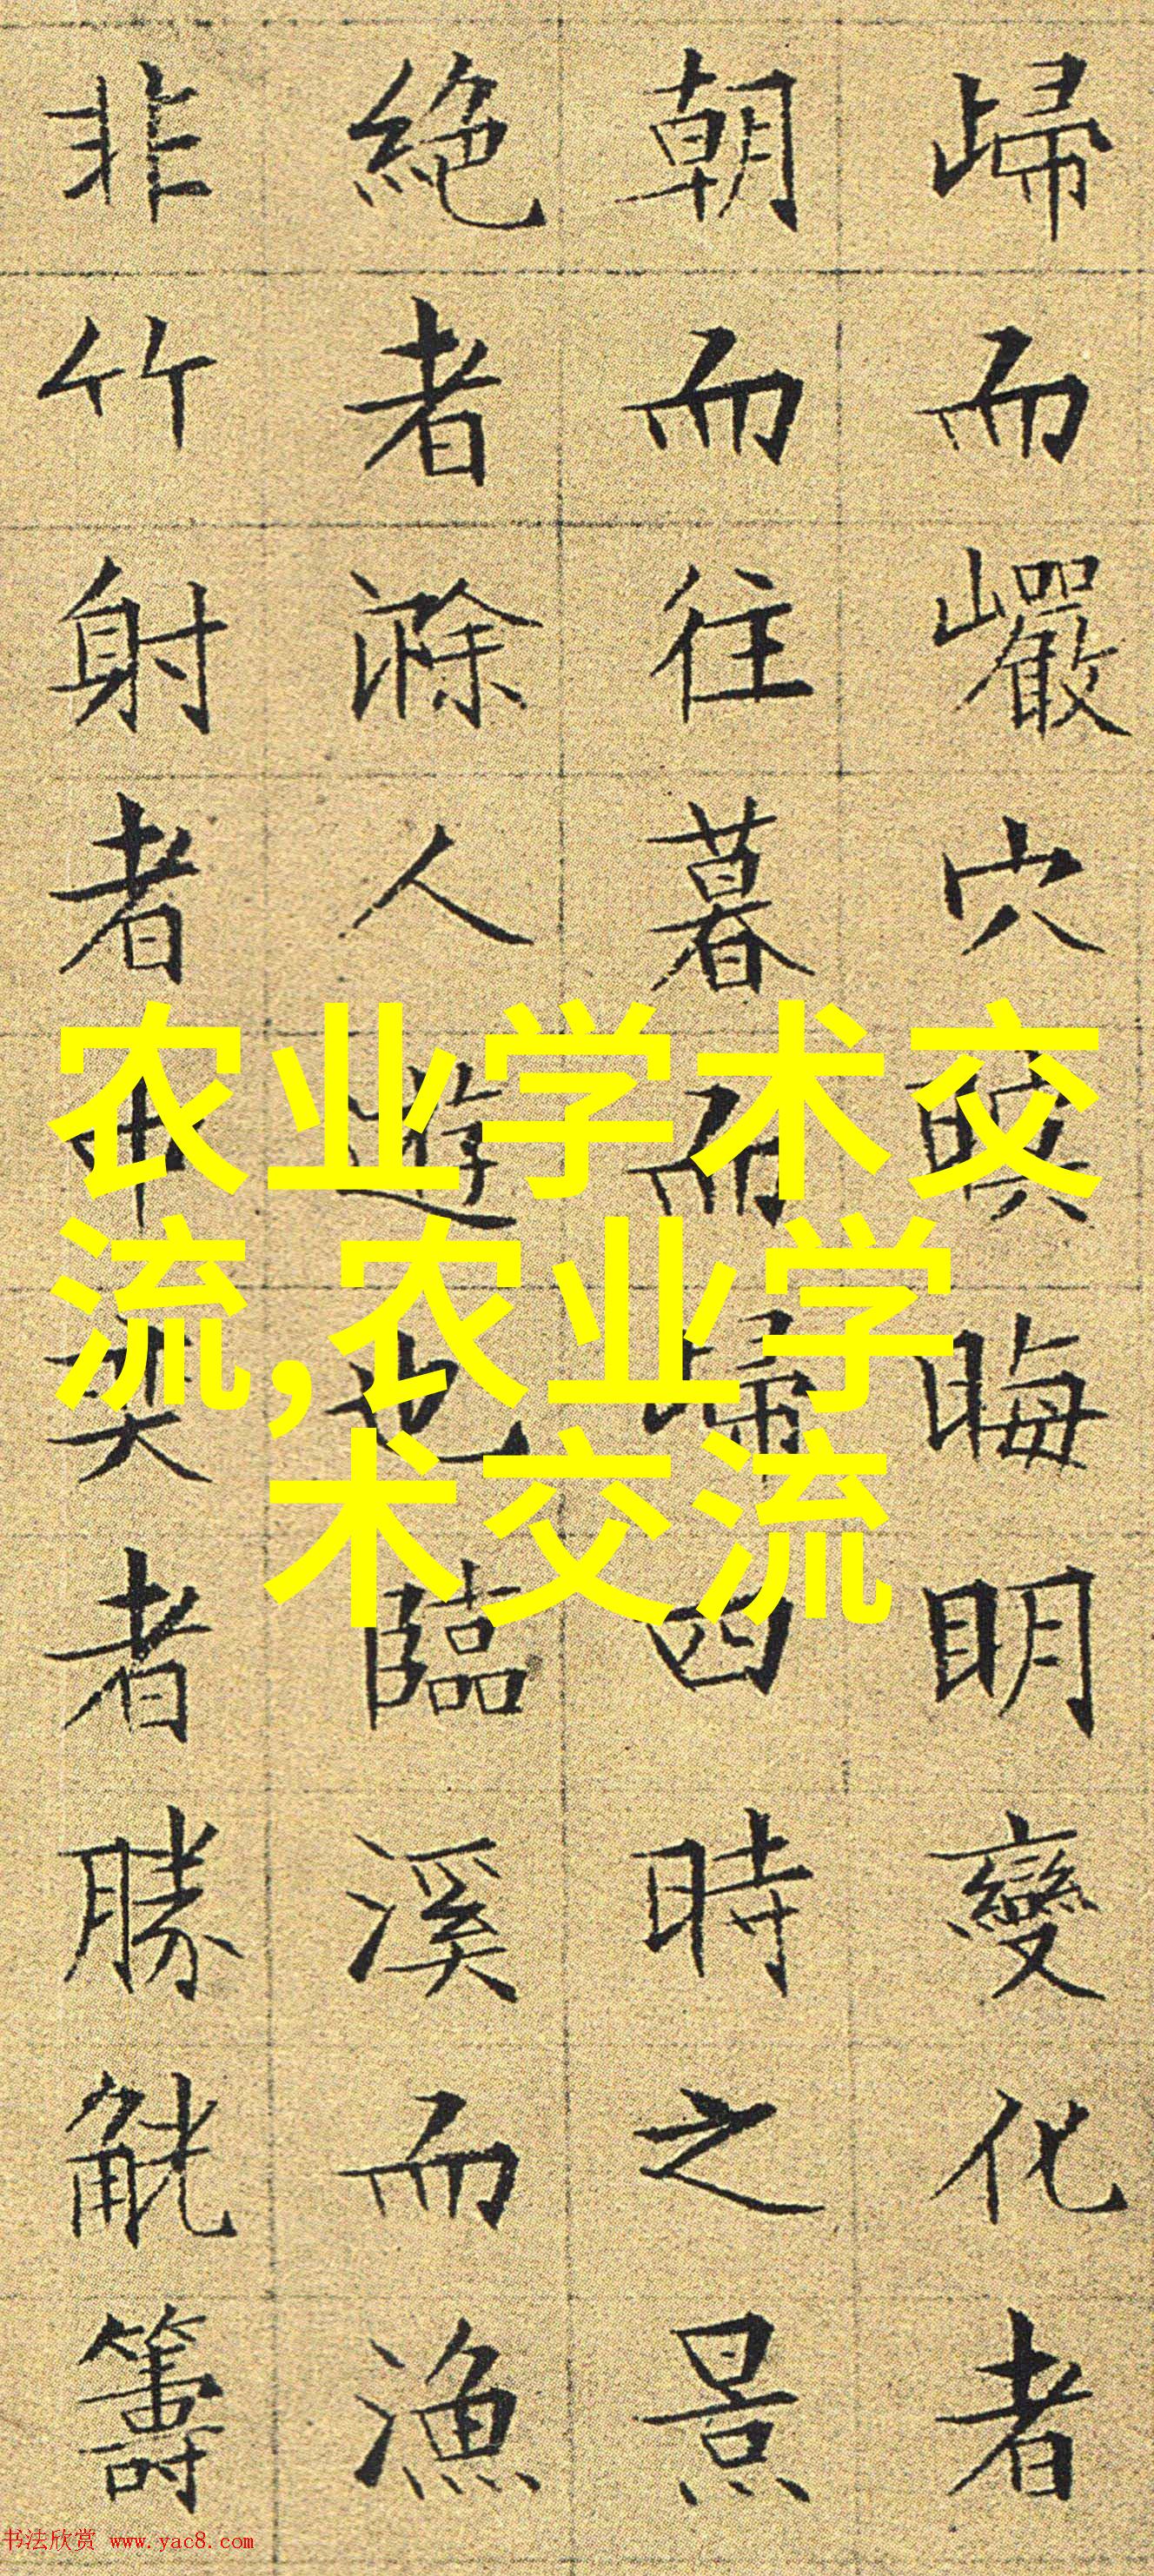 歸而巖穴暝晦明變化者
朝而往暮而歸四時之景
絕者滁人遊也臨溪而漁
非竹射者中奕者勝觥籌
农业学术交
流,农业学
术交流
书法欣赏 www.yac8.com